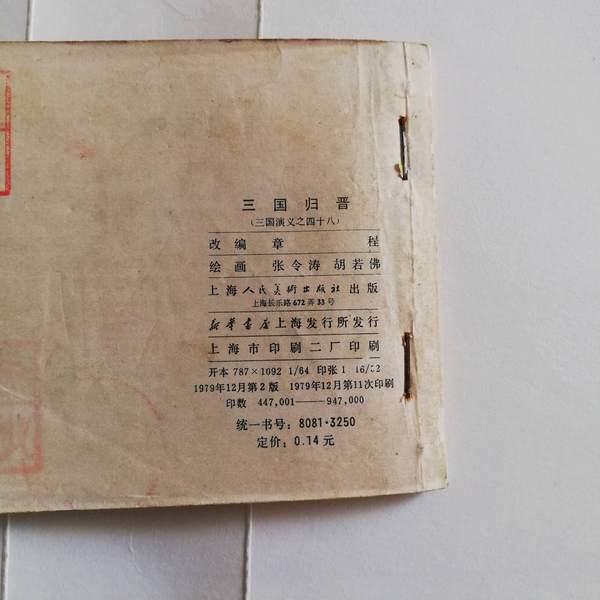 三国归晋
(三国演义之四十八)
改编 章 程
绘画 张令涛 胡若佛
上海人民美術出版社出版
上海长乐路672弄33号
新华书店上海发行所发行
上海市印刷二厂印刷
开本 787×1092 1/64 印张 1 16/32
1979年12月第2版 1979年12月第11次印刷
印数 447,001——947,000
统一书号：8081·3250
定价：0.14元